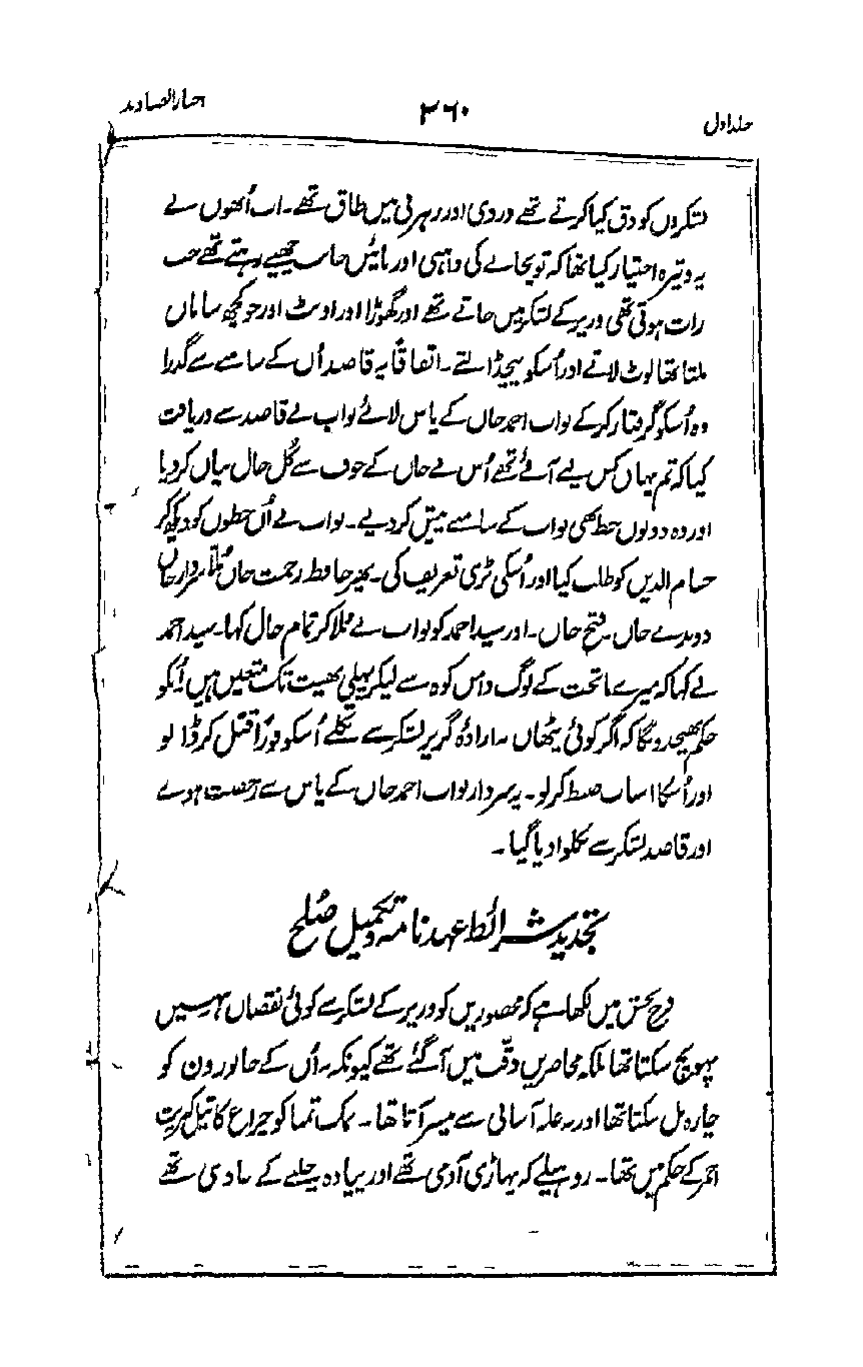 جلد اول ۳۶۰ اخبار الصنادید
لشکروں کو دق کیا کرتے تھے دزدی اور رہزنی میں طاق تھے۔ اب اُنھوں نے
یہ وتیرہ اختیار کیا تھا کہ توپخانے کی داہنی اور بائیں جانب چھپے رہتے تھے جب
رات ہوتی تھی وزیر کے لشکر میں جاتے تھے اور گھوڑا اور اونٹ اور جو کچھ سامان
ملتا تھا لوٹ لاتے اور اُسکو بیچ ڈالتے۔ اتفاقاً یہ قاصد اُن کے سامنے سے گذرا
وہ اُسکو گرفتار کرکے نواب احمد خاں کے پاس لائے نواب نے قاصد سے دریافت
کیا کہ تم یہاں کس لیے آئے تھے اُس نے جان کے خوف سے کُل حال بیان کردیا
اور وہ دونوں خط بھی نواب کے سامنے پیش کردیے۔ نواب نے اُن خطوں کو دیکھ کر
حسام الدین کو طلب کیا اور اُسکی بڑی تعریف کی۔ پھر حافظ رحمت خاں مُلّا سردار خاں
دوندے خاں۔ فتح خاں۔ اور سید احمد کو نواب نے بُلا کر تمام حال کہا۔ سید احمد
نے کہا کہ میرے ماتحت کے لوگ دامن کوہ سے لیکر پہلی بھیت تک متعین ہیں اُنکو
حکم بھیجدونگا کہ اگر کوئی پٹھان بارادۂ گریز لشکر سے نکلے اُسکو فوراً قتل کر ڈالو
اور اُسکا اسباب ضبط کرلو۔ یہ سردار نواب احمد خاں کے پاس سے رخصت ہوے
اور قاصد لشکر سے نکلوا دیا گیا۔
تجدید شرائط عہدنامہ و تکمیل صُلح
فرح بخش میں لکھا ہے کہ محصورین کو وزیر کے لشکر سے کوئی نقصان نہیں
پہونچ سکتا تھا بلکہ محاصرین دقّت میں آگئے تھے کیونکہ نہ اُن کے جانورون کو
چارہ مل سکتا تھا اور نہ غلہ آسانی سے میسر آتا تھا۔ نمک تماکو چراغ کا تیل کبریت
احمر کے حکم میں تھا۔ روہیلے کہ پہاڑی آدمی تھے اور پیادہ چلنے کے عادی تھے